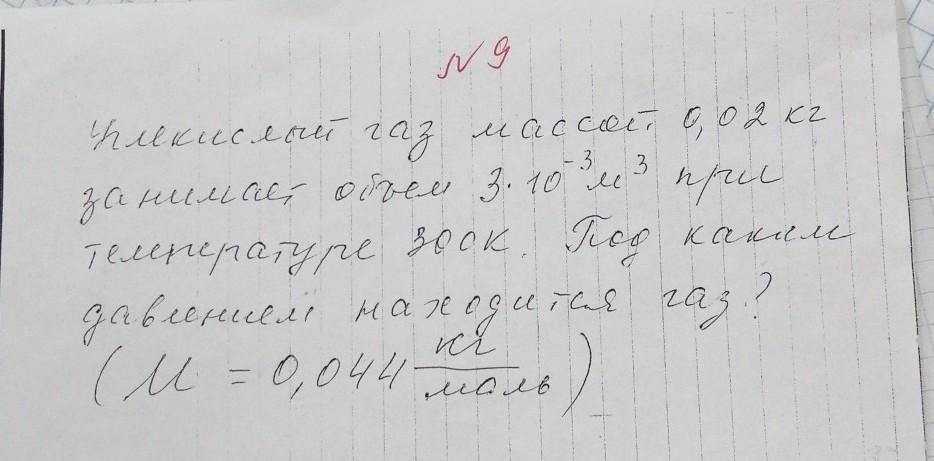 № 9
Углекислый газ массой 0,02 кг
занимает объем 3·10⁻³м³ при
температуре 300К. Под каким
давлением находится газ?
(М = 0,044 кг/моль)